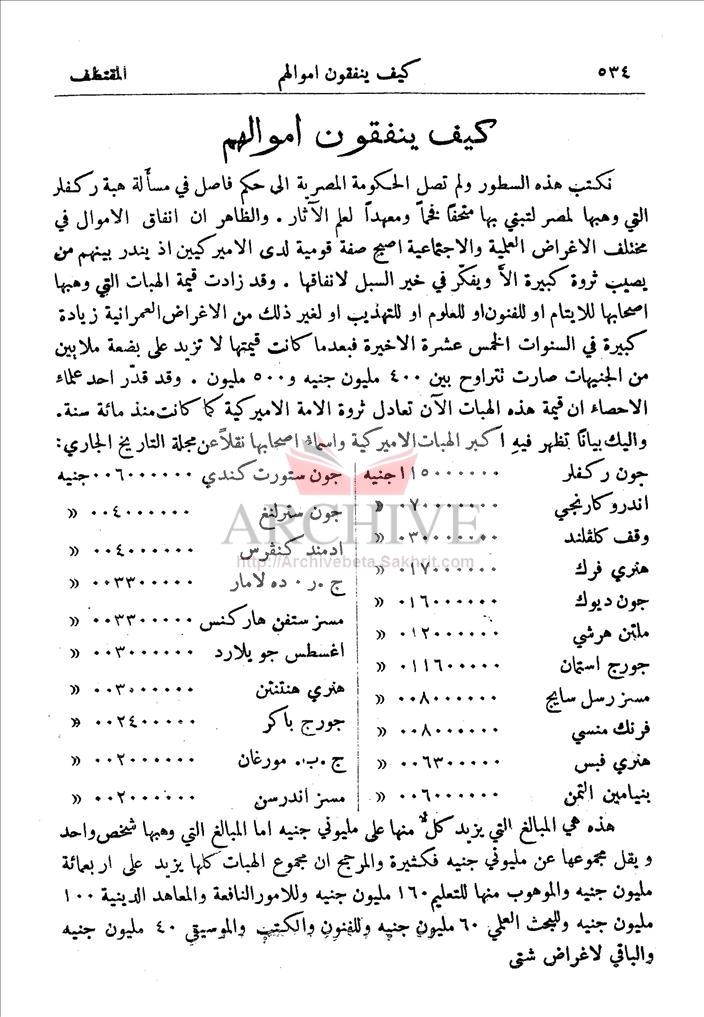 ٥٣٤ كيف ينفقون اموالهم المقتطف
كيف ينفقون اموالهم
نكتب هذه السطور ولم تصل الحكومة المصرية الى حكم فاصل في مسألة هبة ركفلر
التي وهبها لمصر لتبني بها متحفاً فخماً ومعهداً لعلم الآثار . والظاهر ان انفاق الاموال في
مختلف الاغراض العلمية والاجتماعية اصبح صفة قومية لدى الاميركيين اذ يندر بينهم من
يصيب ثروة كبيرة الاَّ ويفكّر في خير السبل لانفاقها . وقد زادت قيمة الهبات التي وهبها
اصحابها للايتام او للفنون او للعلوم او للتهذيب او لغير ذلك من الاغراض العمرانية زيادة
كبيرة في السنوات الخمس عشرة الاخيرة فبعدما كانت قيمتها لا تزيد على بضعة ملايين
من الجنيهات صارت تتراوح بين ٤٠٠ مليون جنيه و٥٠٠ مليون . وقد قدّر احد علماء
الاحصاء ان قيمة هذه الهبات الآن تعادل ثروة الامة الاميركية كما كانت منذ مائة سنة.
واليك بياناً تظهر فيهِ اكبر الهبات الاميركية واسماء اصحابها نقلاً عن مجلة التاريخ الجاري:
جون ركفلر ١١٥٠٠٠٠٠٠ جنيه
اندرو كارنجي ٠٧٠٠٠٠٠٠٠ «
وقف كلڤلند ٠٣٠٠٠٠٠٠٠ «
هنري فرك ٠١٧٠٠٠٠٠٠ «
جون ديوك ٠١٦٠٠٠٠٠٠ «
ملتن هرشي ٠١٢٠٠٠٠٠٠ «
جورج استمان ٠١١٦٠٠٠٠٠ «
مسز رسل سايج ٠٠٨٠٠٠٠٠٠ «
فرنك منسي ٠٠٨٠٠٠٠٠٠ «
هنري فبس ٠٠٦٣٠٠٠٠٠ «
بنيامين التمن ٠٠٦٠٠٠٠٠٠ «
جون ستورت كندي ٠٠٦٠٠٠٠٠٠ جنيه
جون سترلنغ ٠٠٤٠٠٠٠٠٠ «
ادمند كنڤرس ٠٠٤٠٠٠٠٠٠ «
ج . ر . ده لامار ٠٠٣٣٠٠٠٠٠ «
مسز ستفن هاركنس ٠٠٣٣٠٠٠٠٠ «
اغسطس جويلارد ٠٠٣٠٠٠٠٠٠ «
هنري هنتنتن ٠٠٣٠٠٠٠٠٠ «
جورج باكر ٠٠٢٤٠٠٠٠٠ «
ج . ب . مورغان ٠٠٢٠٠٠٠٠٠ «
مسز اندرسن ٠٠٢٠٠٠٠٠٠ «
هذه هي المبالغ التي يزيد كلٌّ منها على مليوني جنيه اما المبالغ التي وهبها شخص واحد
ويقل مجموعها عن مليوني جنيه فكثيرة والمرجح ان مجموع الهبات كلها يزيد على اربعمائة
مليون جنيه والموهوب منها للتعليم ١٦٠ مليون جنيه وللامور النافعة والمعاهد الدينية ١٠٠
مليون جنيه وللبحث العلمي ٦٠ مليون جنيه وللفنون والكتب والموسيقى ٤٠ مليون جنيه
والباقي لاغراض شتى
ARCHIVE
http://Archivebeta.Sakhrit.com